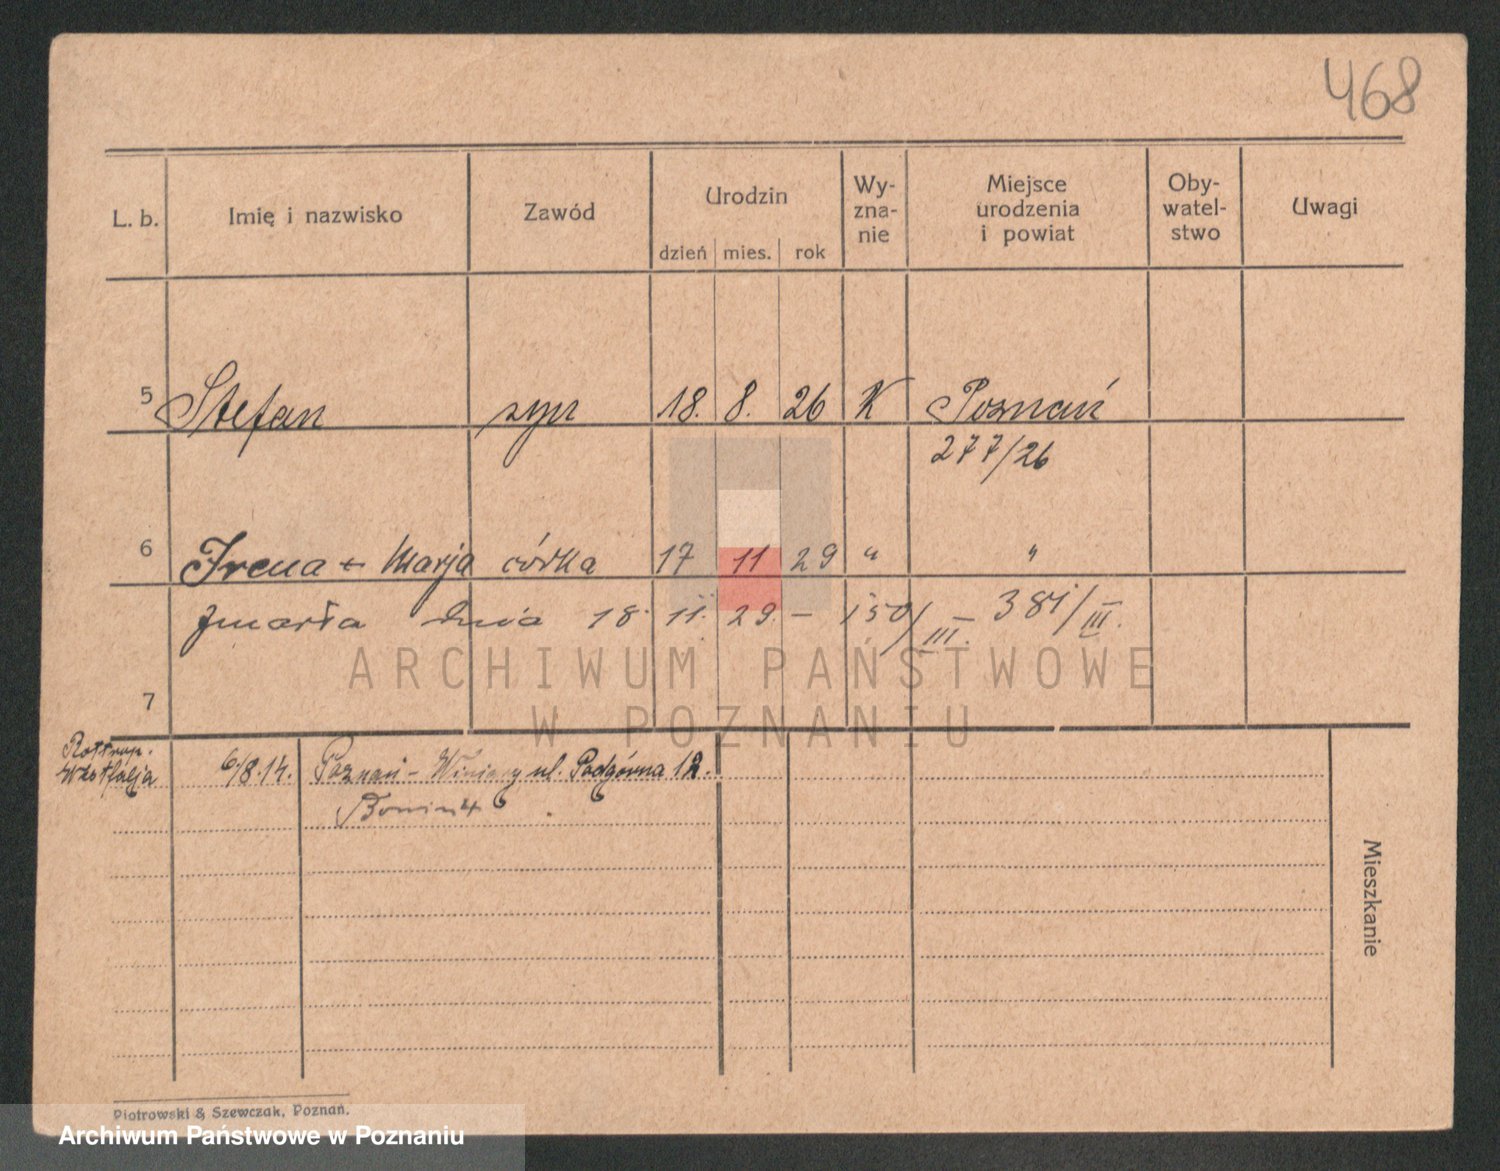 468
L. b. Imię i nazwisko Zawód Urodzin Wy- Miejsce Oby- Uwagi
zna- urodzenia watel-
nie i powiat stwo
dzień mies. rok
5 Stefan syn 18. 8. 26 K Poznań
277/26
6 Irena + Marja córka 17 11 29 " "
zmarła dnia 18. 11. 29. – 150/III. 381/III.
ARCHIWUM PAŃSTWOWE
7
W POZNANIU
Bottrop. 6/8.14. Poznań - Winiary ul. Podgórna 12.
Westfalja
Mieszkanie
Piotrowski & Szewczak, Poznań.
Archiwum Państwowe w Poznaniu